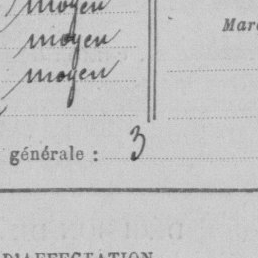 moyen
Mar
moyen
moyen
générale : 3
D'AFFECTATION